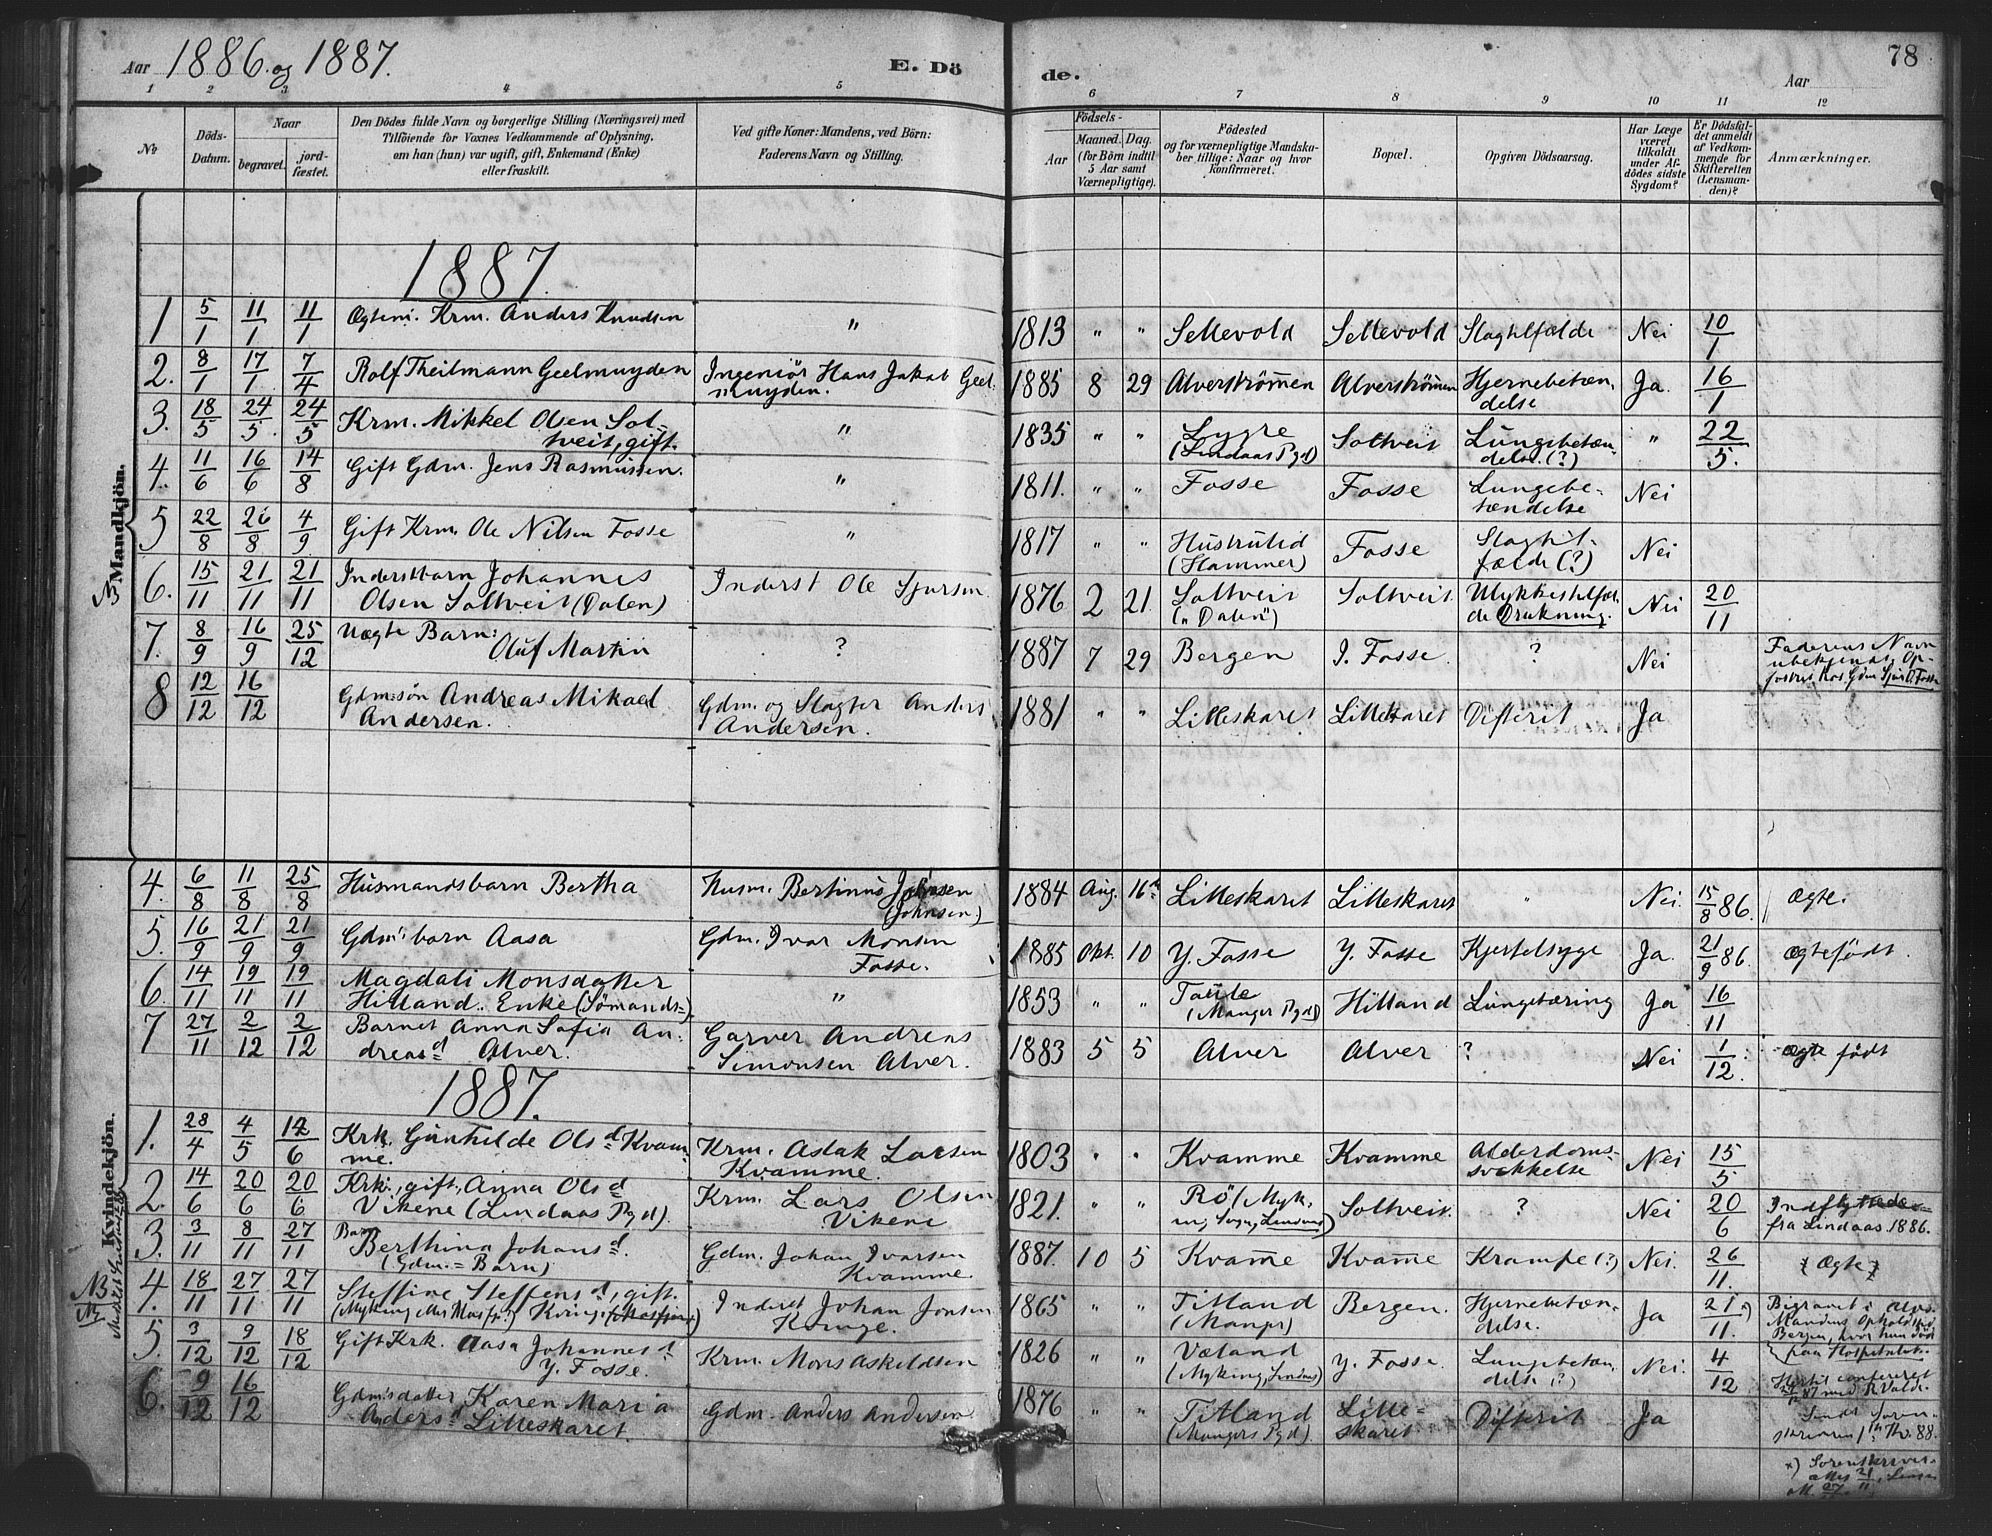 Aar 1886 og 1887. E. Dö de. Aar 78
1 2 3 4 5 6 7 8 9 10 11 12
No
Döds-Datum.
Naar
begravet.
jord-fæstet.
Den Dödes fulde Navn og borgerlige Stilling (Næringsvei) med
Tilföiende for Voxnes Vedkommende af Oplysning,
om han (hun) var ugift, gift, Enkemand (Enke)
eller fraskilt.
Ved gifte Koner: Mandens, ved Börn:
Faderens Navn og Stilling.
Födsels-
Aar
Maaned. Dag.
(for Börn indtil
5 Aar samt
Værnepligtige).
Födested
og for værnepligtige Mandska-
ber tillige: Naar og hvor
konfirmeret.
Bopæl.
Opgiven Dödsaarsag.
Har Læge
været
tilkaldt
under Af-
dödes sidste
Sygdom?
Er Dödsfal-
det anmeldt
af Vedkom-
mende for
Skifteretten
(Lensman-
den)?
Anmærkninger.
Mandkjön.
1887.
1 5/1 11/1 11/1 Ægtem. Krm. Anders Knudsen " 1813 " " Sellevold Sellevold Slagtilfælde Nei 10/1
2. 8/1 17/1 7/4 Rolf Theilmann Geelmuyden Ingeniør Hans Jakob Geel-
muyden. 1885 8 29 Alverströmmen Alverströmmen Hjernebetæn-
delse Ja. 16/1
3. 18/5 24/5. 24/5 Krm. Mikkel Olsen Sol-
tveit, gift. " 1835 " " Lygre
(Lindaas Pgd) Soltveit Lungebetæn-
delse. (?) " 22/5.
4. 11/6 16/6 14/8 Gift Gdm. Jens Rasmussen. " 1811. " " Fosse Fosse Lungebe-
tændelse Nei
5 22/8 26/8 4/9 Gift Krm. Ole Nilsen Fosse " 1817 " " Hustrulid
(Hammer) Fosse Slagtil-
fælde (?) Nei
6. 15/11 21/11 21/11 Inderstbarn Johannes
Olsen Soltveit (Dalen) Inderst Ole Sjursen. 1876 2 21. Soltveit
("Dalen") Soltveit. Ulykkestilfæl-
de Drukning. Nei 20/11
7. 8/9 16/9 25/12 Uægte Barn:
Oluf Martin ? 1887 7 29 Bergen I. Fosse. ? Nei Faderens Navn
ubekjendt, Op-
fostret hos Gdm
8 12/12 16/12 Gdm:søn Andreas Mikael
Andersen. Gdm. og Slagter Anders
Andersen. 1881 " " Lilleskaret Lilleskaret Difterit Ja
Kvindekjön.
4. 6/8 11/8 25/8 Husmandsbarn Bertha Husm. Bertinus
(Johnsen) 1884 Aug. 16de Lilleskaret Lilleskaret " Nei. 15/8 86. ægte.
5. 16/9 21/9 21/9 Gdm's barn Aasa Gdm. Ivar Monsen
Fosse. 1885 Okt. 10 Y. Fosse Y. Fosse Kjertelsyge Ja. 21/9 86. ægtefødt.
6. 14/11 19/11 19/11 Magdali Monsdatter
Hilland. Enke (Sömands-) " 1853 " " Toule
(Manger Pgd) Hilland Lungetæring Ja 16/11
7 27/11 2/12 2/12 Barnet Anna Sofia An-
dreasd Alver. Garver Andreas
Simonsen Alver. 1883 5 5 Alver Alver ? Nei 1/12. ægte født
1887.
1. 28/4 4/5 12/6 Krk. Gunhilde Olsd Kvam-
me. Krm. Aslak Larsen
Kvamme. 1803 " " Kvamme Kvamme Alderdoms-
svækkelse Nei 15/5
2. 14/6 20/6 20/6 Krk., gift, Anna Olsd
Vikene (Lindaas Pgd). Krm. Lars Olsen
Vikene 1821. " " Rö (Myk-
ing Sogn, Lindaas) Soltveit. ? Nei 20/6 Indflyttede
fra Lindaas 1886.
3. 3/11 8/11 27/11 Barn
Berthina Johansd.
(Gdm. = Barn) Gdm. Johan Ivarsen
Kvamme 1887. 10 5 Kvamme Kvamme Krampe (?) Nei. 26/11. Ægte
NB 4. 18/11 27/11 27/11 Steffine Steffensd, gift.
Inderst Johan Jonsen
Kringe. 1865 " " Titland
(Manger) Bergen. Hjernebetæn-
delse. Ja 21/11. Begravet i Alver.
Mandens Ophold ved
Bergen, hvor hun död
paa Hospitalet.
5. 3/12 9/12 18/12 Gift Krk. Aasa Johannesd
Y. Fosse. Krm. Mons Askildsen 1826 " " Væland
(Myking, Lindaas) Y. Fosse. Lungebetæn-
delse (?) Nei. 4/12
6. 9/12 16/12 Gdm'sdatter Karen Maria
Andersd Lilleskaret. Gdm. Anders Andersen. 1876 " " Titland
(Mangers Pgd) Lille-
skaret. Difterit Ja